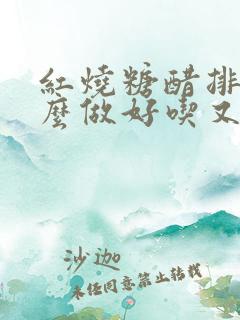 紅燒糖醋排
麼做好喫又
沙迦
未经同意禁止转载